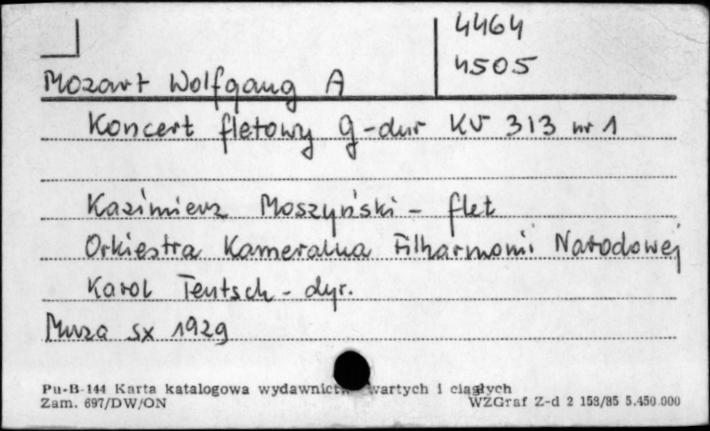 4464
4505
Mozart Wolfgang A
Koncert fletowy G-dur KV 313 nr 1
Kazimierz Moszyński - flet
Orkiestra Kameralna Filharmonii Narodowej
Karol Teutsch - dyr.
Muza SX 1929
Pu-B-144 Karta katalogowa wydawnictw zwartych i ciągłych
Zam. 697/DW/ON
WZGraf Z-d 2 158/85 5.450.000